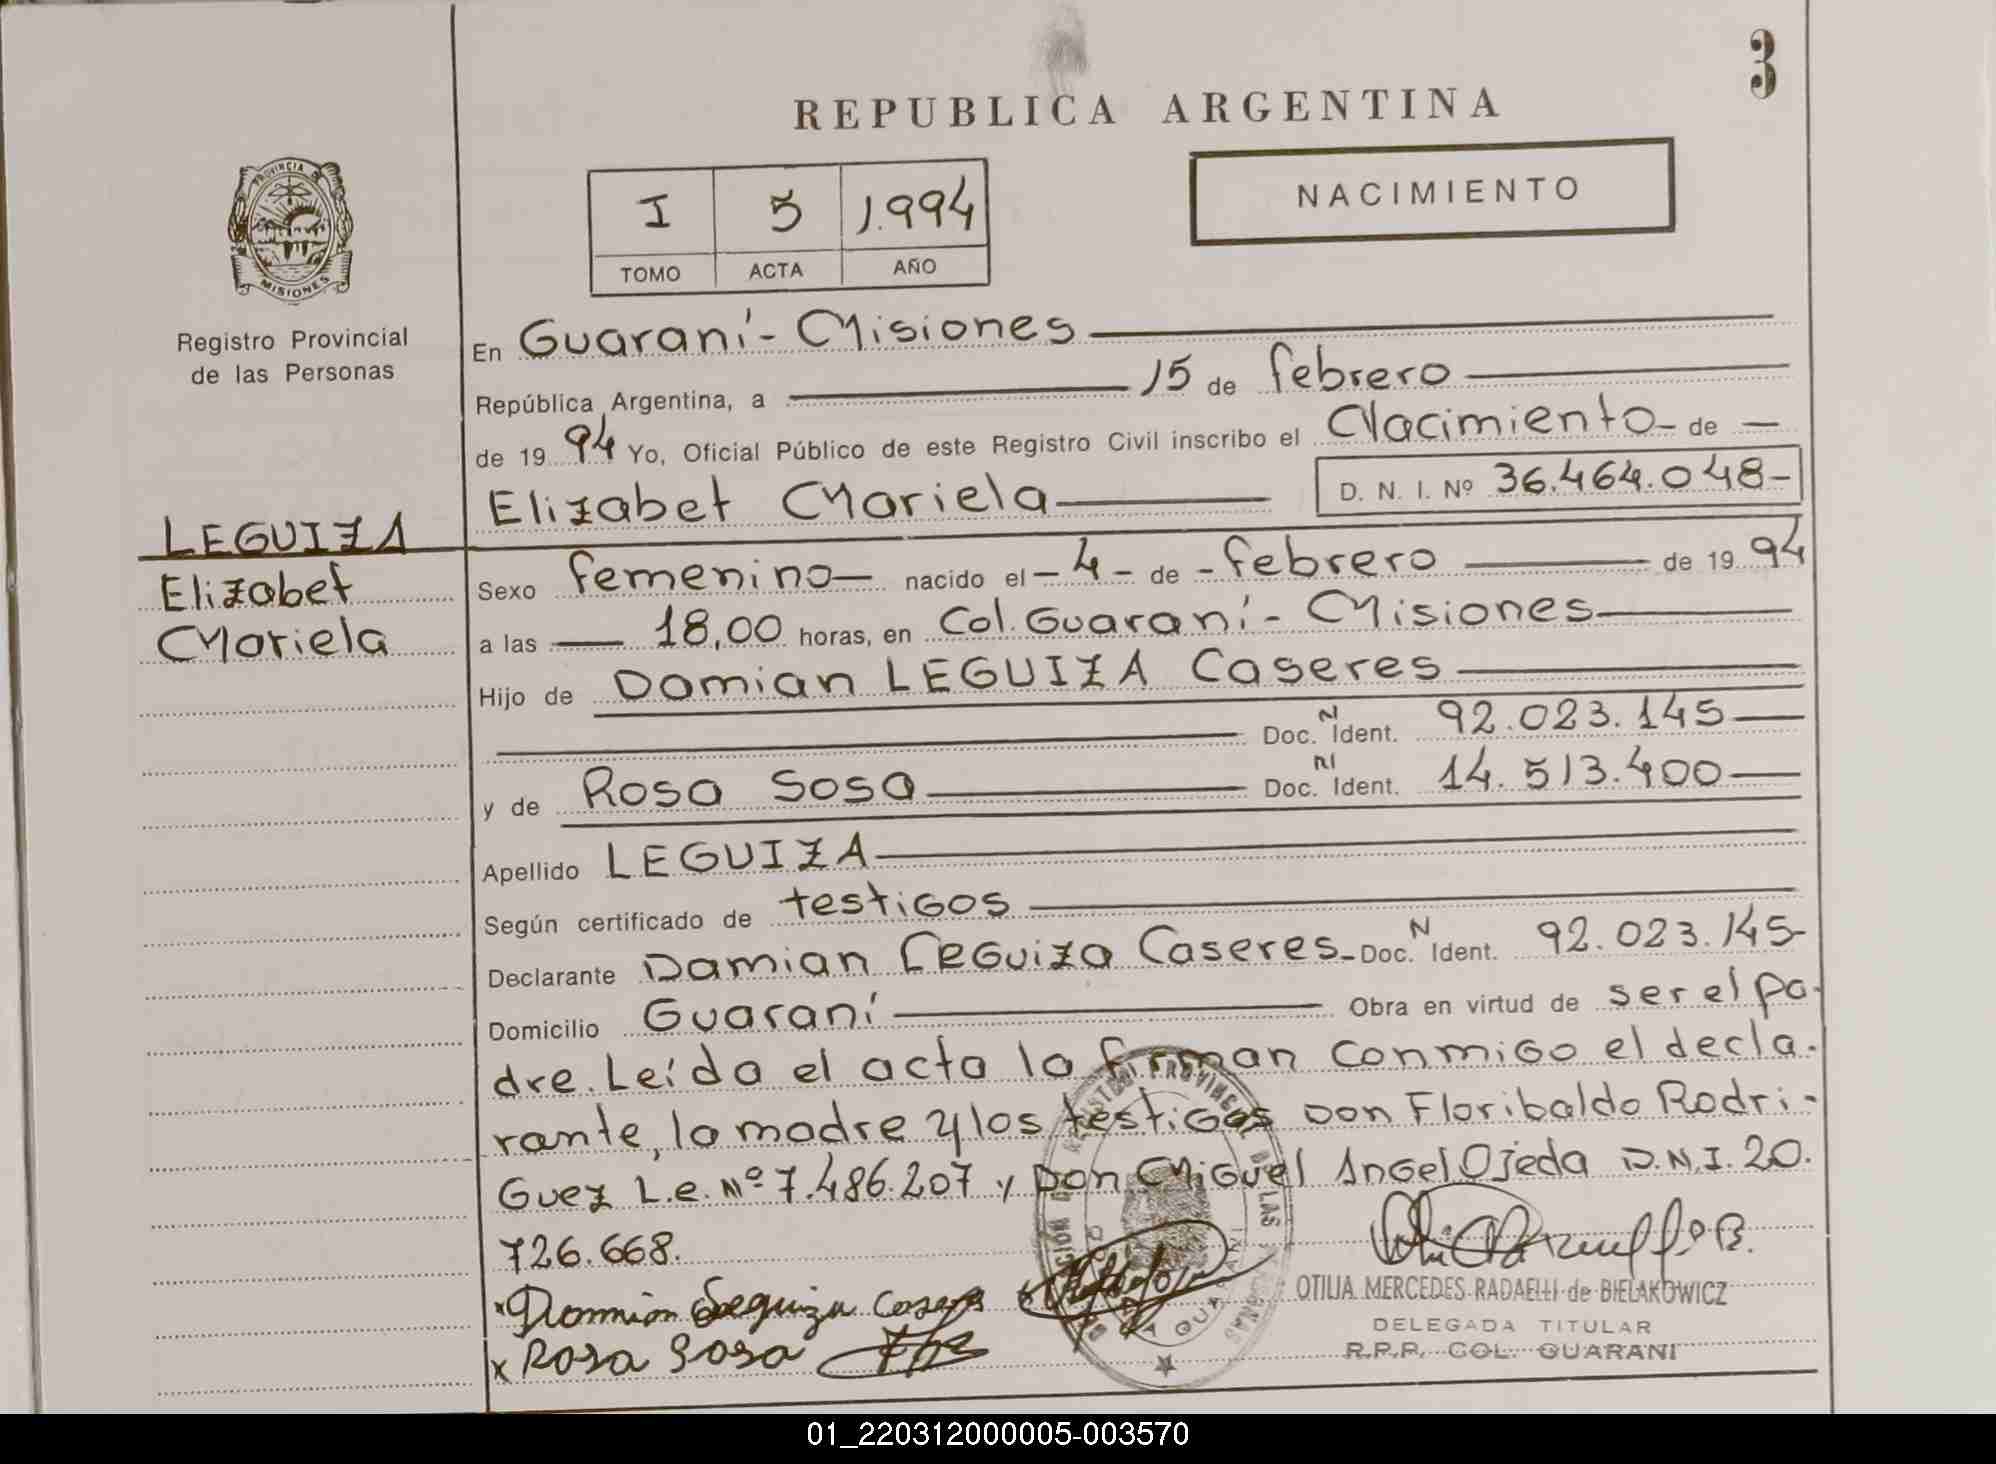 3
REPUBLICA ARGENTINA
PROVINCIA DE
MISIONES
Registro Provincial
de las Personas
I 5 1.994
TOMO ACTA AÑO
NACIMIENTO
En Guaraní - Misiones
República Argentina, a 15 de febrero
de 19 94 Yo, Oficial Público de este Registro Civil inscribo el Nacimiento - de -
Elizabet Mariela D. N. I. Nº 36.464.048-
LEGUIZA
Elizabet
Mariela
Sexo femenino nacido el - 4 - de - febrero de 19 94
a las 18,00 horas, en Col. Guaraní - Misiones
Hijo de Damian LEGUIZA Caseres
Doc. N Ident. 92.023.145
y de Rosa Sosa Doc. NI Ident. 14.513.400
Apellido LEGUIZA
Según certificado de testigos
Declarante Damian Leguiza Caseres - Doc. N Ident. 92.023.145-
Domicilio Guaraní Obra en virtud de ser el pa-
dre. Leída el acta la firman conmigo el decla-
rante, la madre y los testigos Don Floribaldo Rodri-
guez L.e. Nº 7.486.207 y Don Miguel Angel Ojeda D.N.I. 20.
726.668.
x Damian Leguiza Caseres
x Rosa Sosa
OTILIA MERCEDES RADAELLI de BIELAKOWICZ
DELEGADA TITULAR
R.P.P. COL. GUARANI
01_220312000005-003570